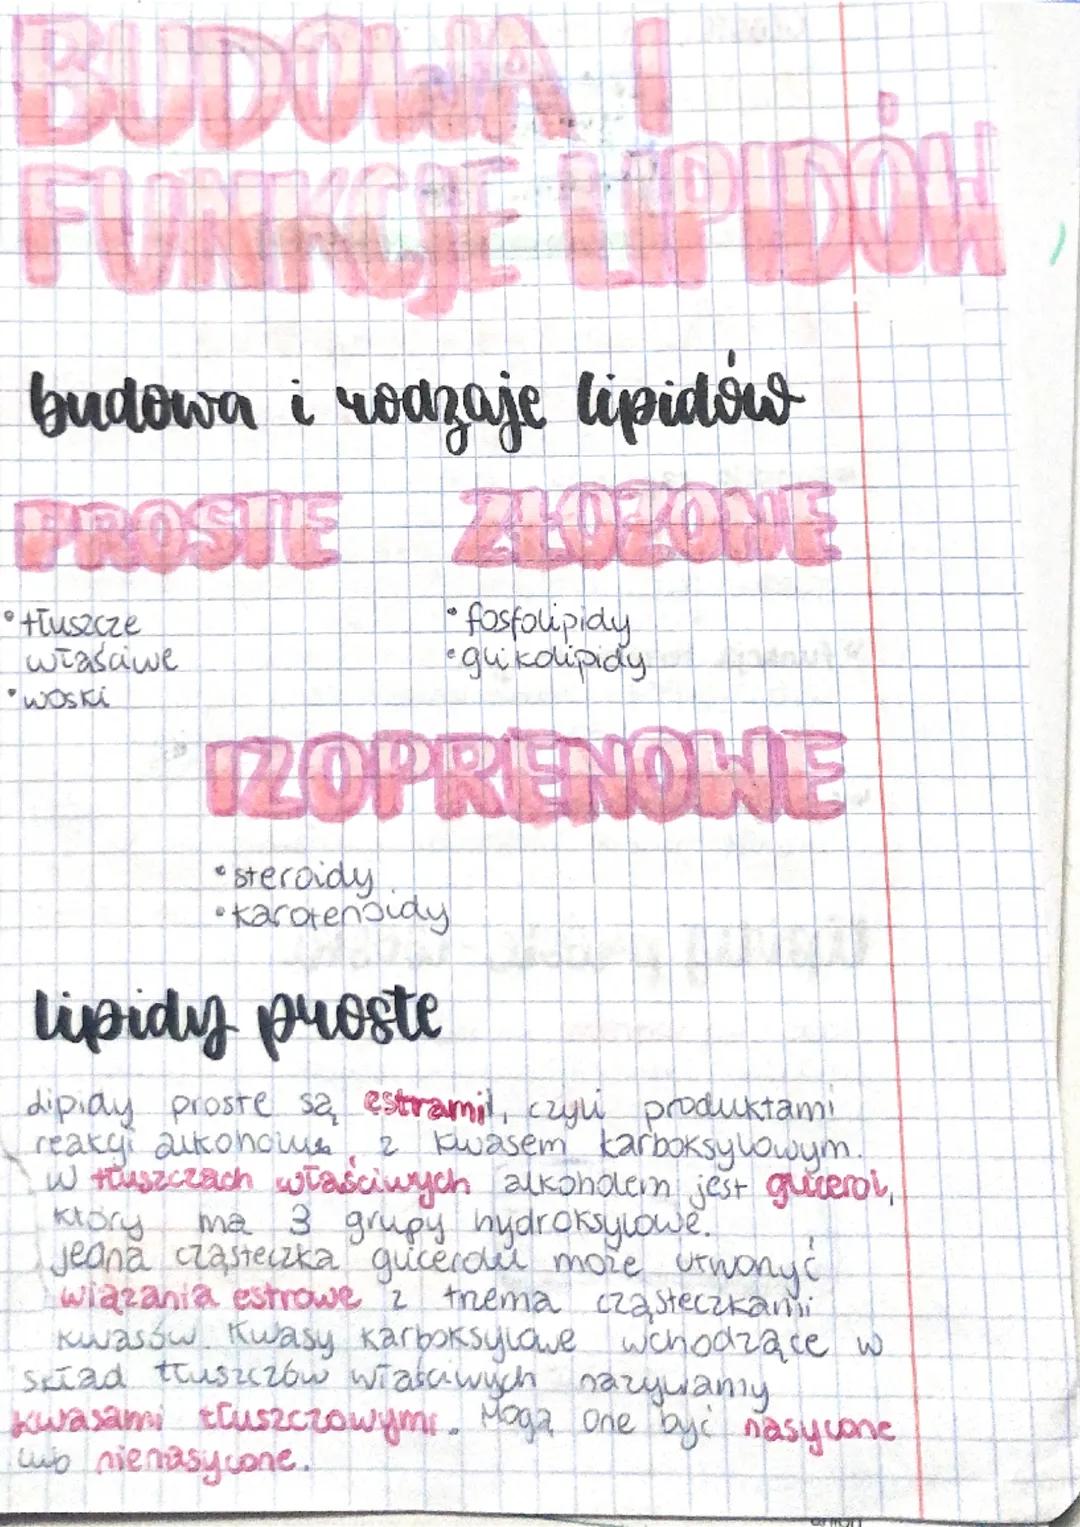 BUDOWA I
FUNKCJE LIPIDÓW
budowa i rodzaje lipidów
PROSTE ZŁOŻONE
• tłuszcze
właściwe
• woski
• fosfolipidy
• glikolipidy
IZOPRENOWE
• steroidy
• karotenoidy
lipidy proste
Lipidy proste są estrami, czyli produktami
reakcji alkoholu z kwasem karboksylowym.
W tłuszczach właściwych alkoholem jest glicerol,
który ma 3 grupy hydroksylowe.
Jedna cząsteczka glicerolu może utworzyć
wiązania estrowe z trzema cząsteczkami
kwasów. Kwasy karboksylowe wchodzące w
skład tłuszczów właściwych nazywamy
kwasami tłuszczowymi. Mogą one być nasycone
lub nienasycone.